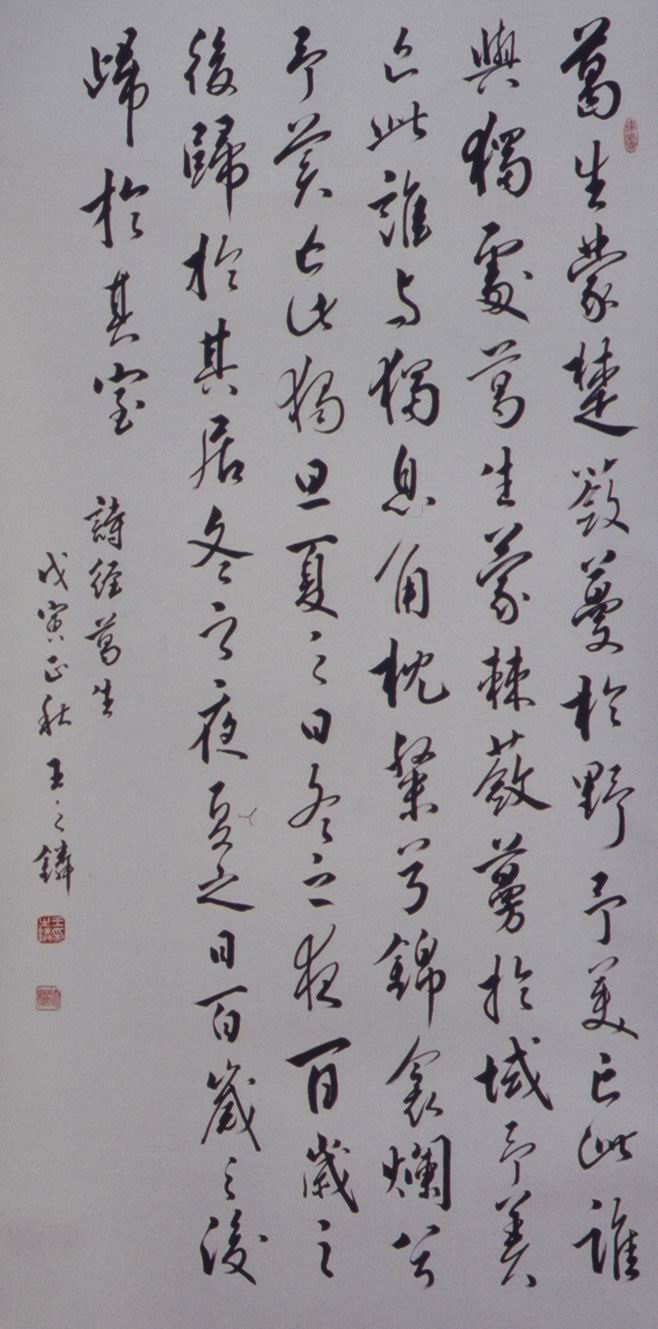 葛生蒙楚蘞蔓於野予美亡此誰
與獨處葛生蒙棘蘞蔓於域予美
亡此誰与獨息角枕粲兮錦衾爛兮
予美亡此獨旦夏之日冬之夜百歲之
後歸於其居冬之夜夏之日百歲之後
歸於其室
詩經葛生
戊寅正秋王之鏻